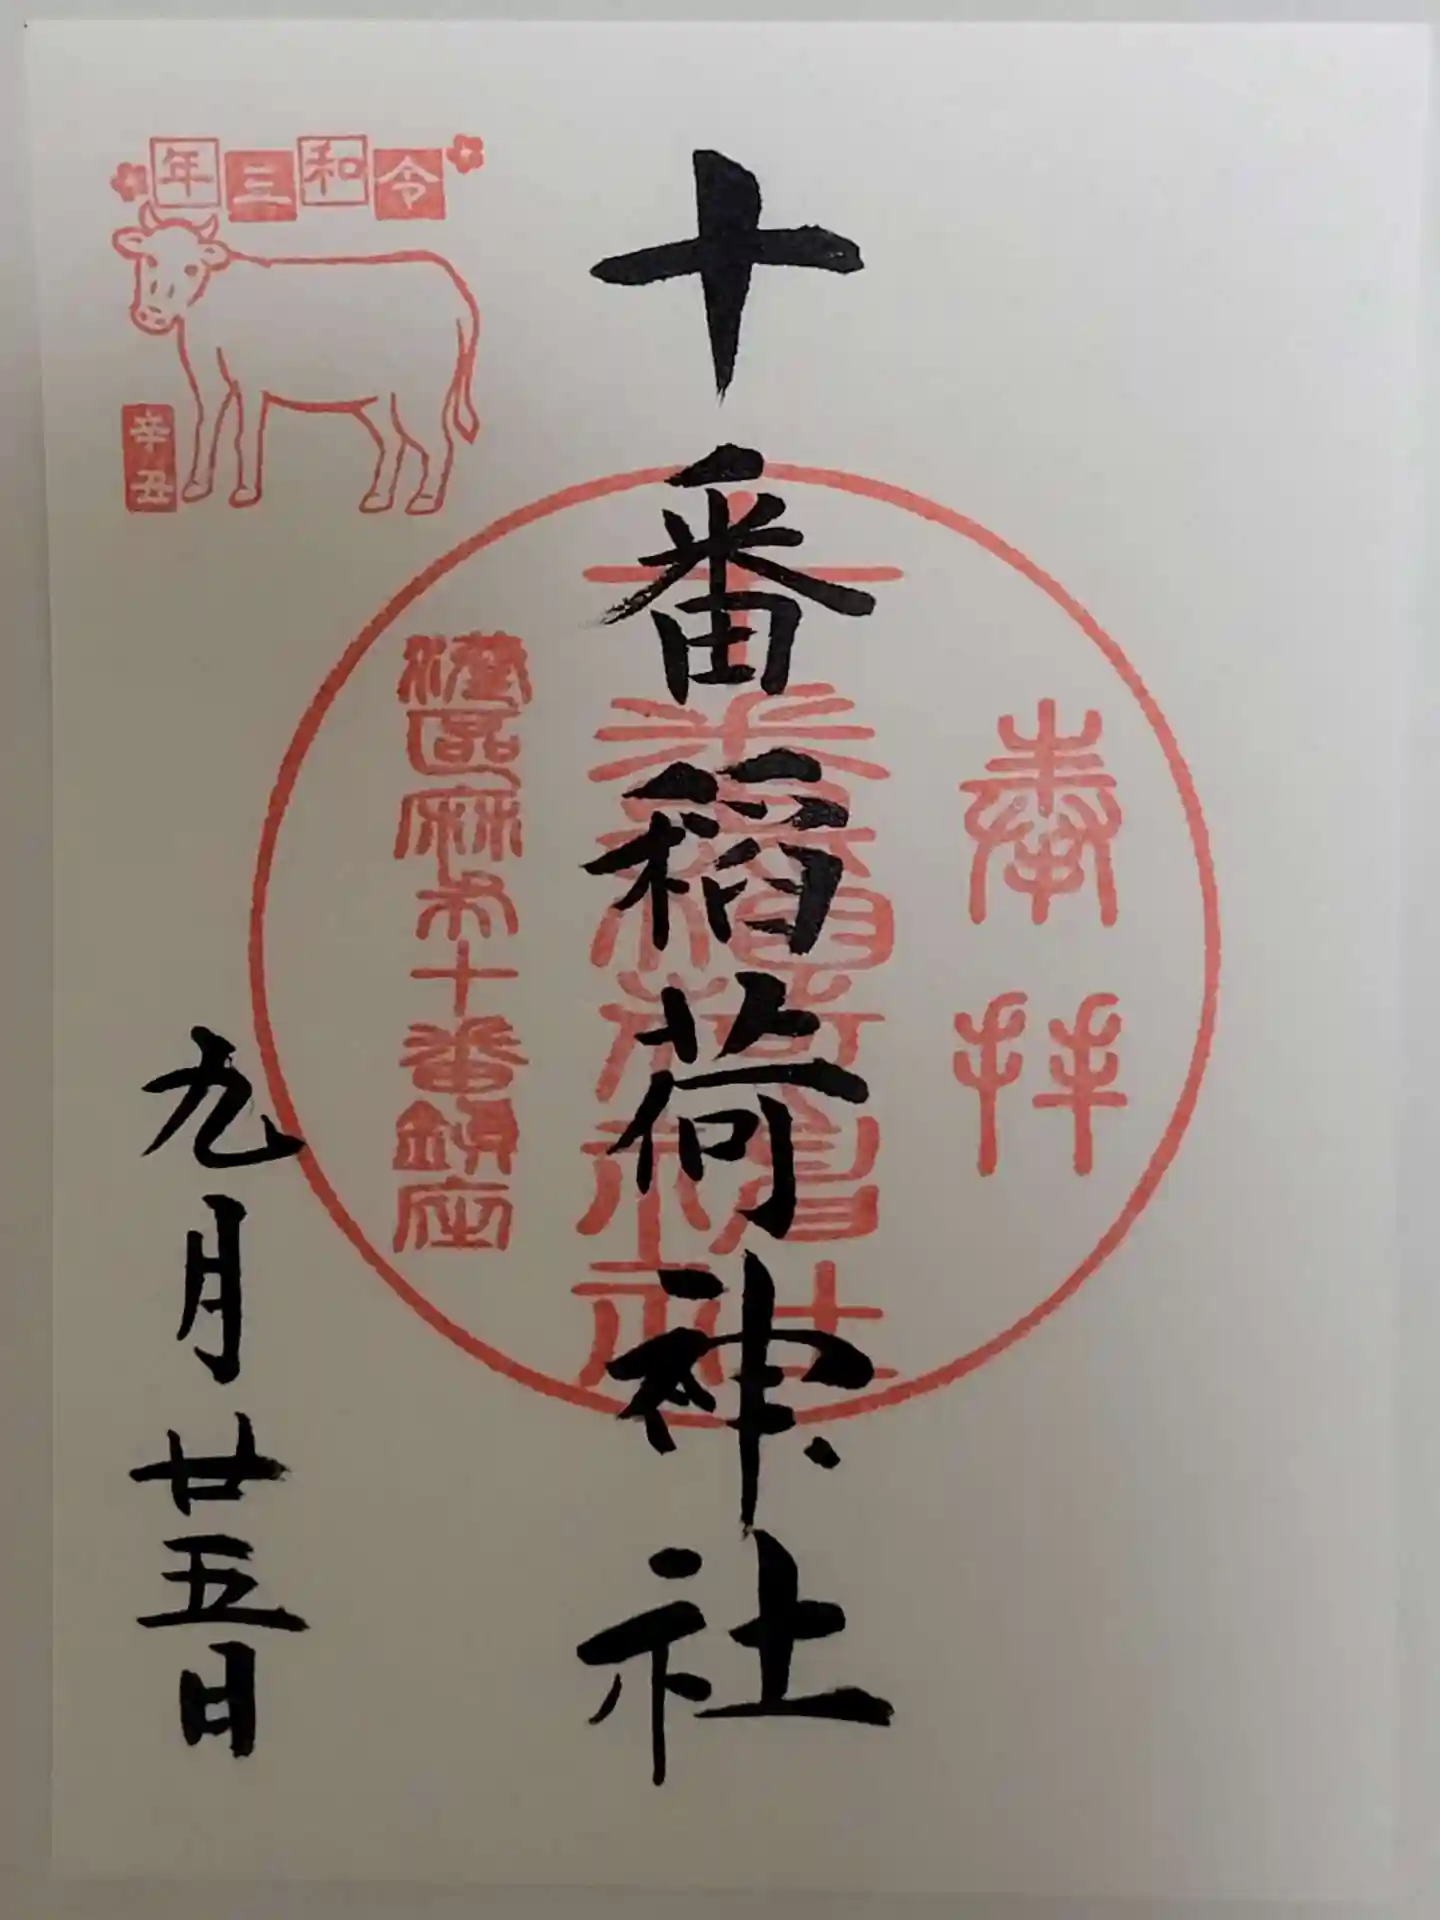 奉拝
十番稲荷神社
十番稲荷神社
港區麻布十番鎮座
令和三年
辛丑
九月廿五日